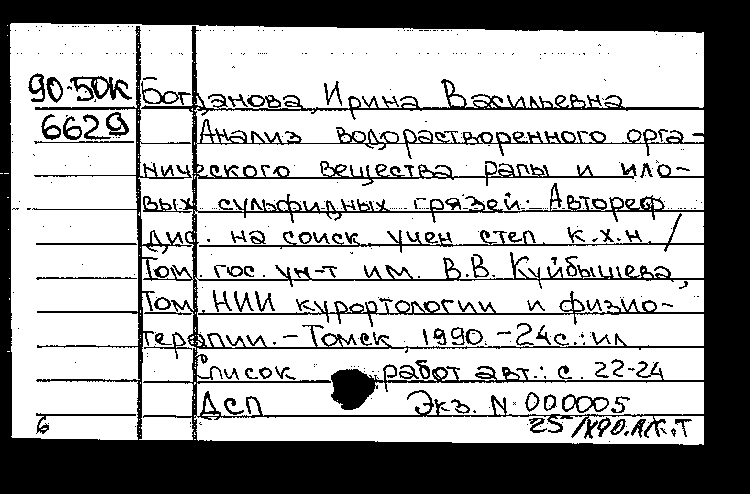 90-50К Богданова, Ирина Васильевна
6629 Анализ водорастворенного орга-
нического вещества рапы и ило-
вых сульфидных грязей: Автореф
дис. на соиск. учен степ. к.х.н. /
Том. гос. ун-т им. В.В. Куйбышева,
Том. НИИ курортологии и физио-
терапии. - Томск, 1990. - 24с.: ил
Список работ авт.: с. 22-24
ДСП Экз. N 000005
6 25/IX90.